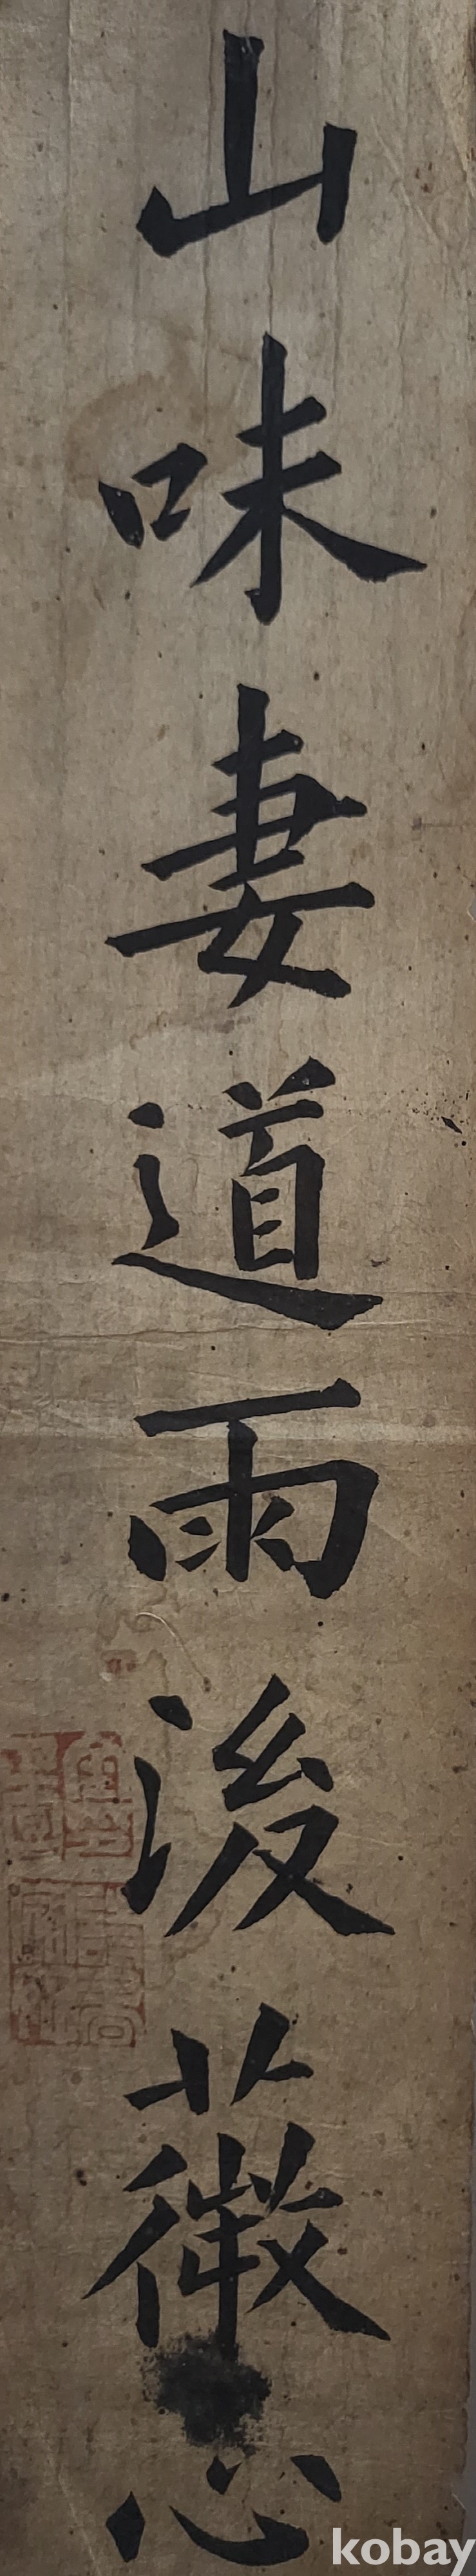 山味妻道雨後薇心
kobay